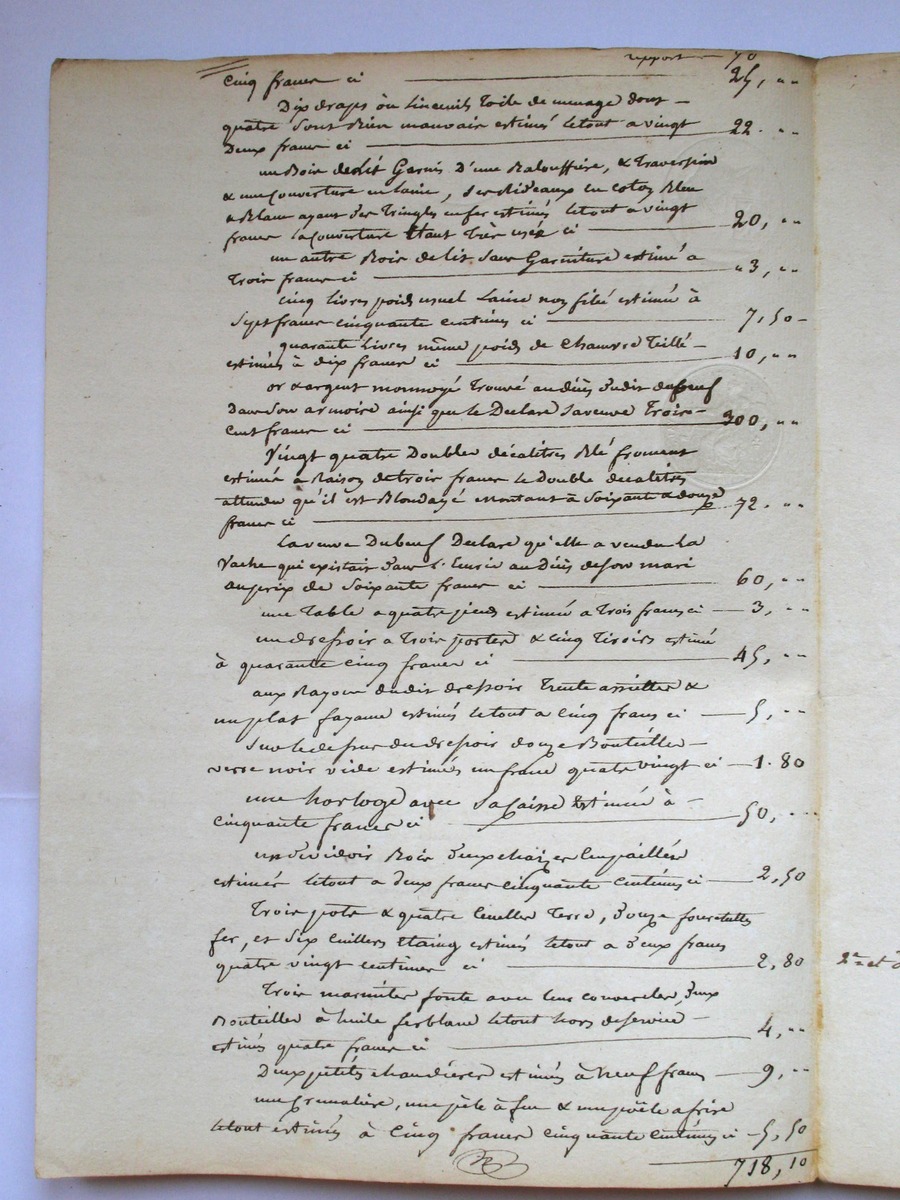 report — 70
cinq francs ci — 25, ""
Dix draps ou linceuils toile de menage dont —
quatre sont bien mauvais estimés letout a vingt
Deux francs ci — 22. ""
un Bois delit Garnis D'une Balouffière, & traversin
& une couverture en laine, des Rideaux en coton Bleu
& Blanc ayant des Tringles en fer estimés letout a vingt
francs la couverture étant très usée ci — 20, ""
un autre Bois de lit sans Garniture estimé a
trois francs ci — "3, ""
cinq livres poids usuel Laine non filé estimé à
Sept francs cinquante centimes ci — 7,50 —
quarante livres même poids de chanvre Teillé —
estimés à dix francs ci — 10, ""
or & argent monnoyé trouvé au décès dudit dubeuf
dans son armoire ainsi que le Déclare sa veuve Trois —
cent francs ci — 300, ""
Vingt quatre Doubles décalitres Blé froment
estimé a Raison de trois francs le Double décalitres
attendu qu'il est Blondayé montant à Soixante & douze
francs ci — 72. ""
La veuve Dubeuf Declare qu'elle a vendu la
Vache qui existait dans l'Ecurie au décès de son mari
au prix de Soixante francs ci — 60, ""
une Table a quatre pieds estimée a Trois francs ci — 3, ""
un dressoir a Trois portes & cinq tiroirs estimé
à quarante cinq francs ci — 45, ""
aux Rayons dudit dressoir trente assiettes &
un plat fayance estimés letout a cinq francs ci — 5, ""
Sur le dessus du dressoir douze Bouteilles —
verre noir vide estimés un franc quatre vingt ci — 1.80
une horloge avec sa caisse Estimée à —
cinquante francs ci — 50, ""
un devidoir Bois deux chaizes Empaillées
estimés letout a deux francs cinquante centimes ci — 2,50
Trois pots & quatre Ecuelles Terre, douze fourchettes
fer, et six cuillers Etaing estimés letout a deux francs
quatre vingt centimes ci — 2,80
Trois marmites fonte avec leur couvercles, deux
Bouteilles à huile ferblanc letout hors de service —
estimés quatre francs ci — 4, ""
Deux petites chaudières estimés à neuf francs — 9, ""
une Cremalière, une pèle à feu & une poële a frire
letout estimés à cinq francs cinquante centimes ci — 5,50
718,10
2e et